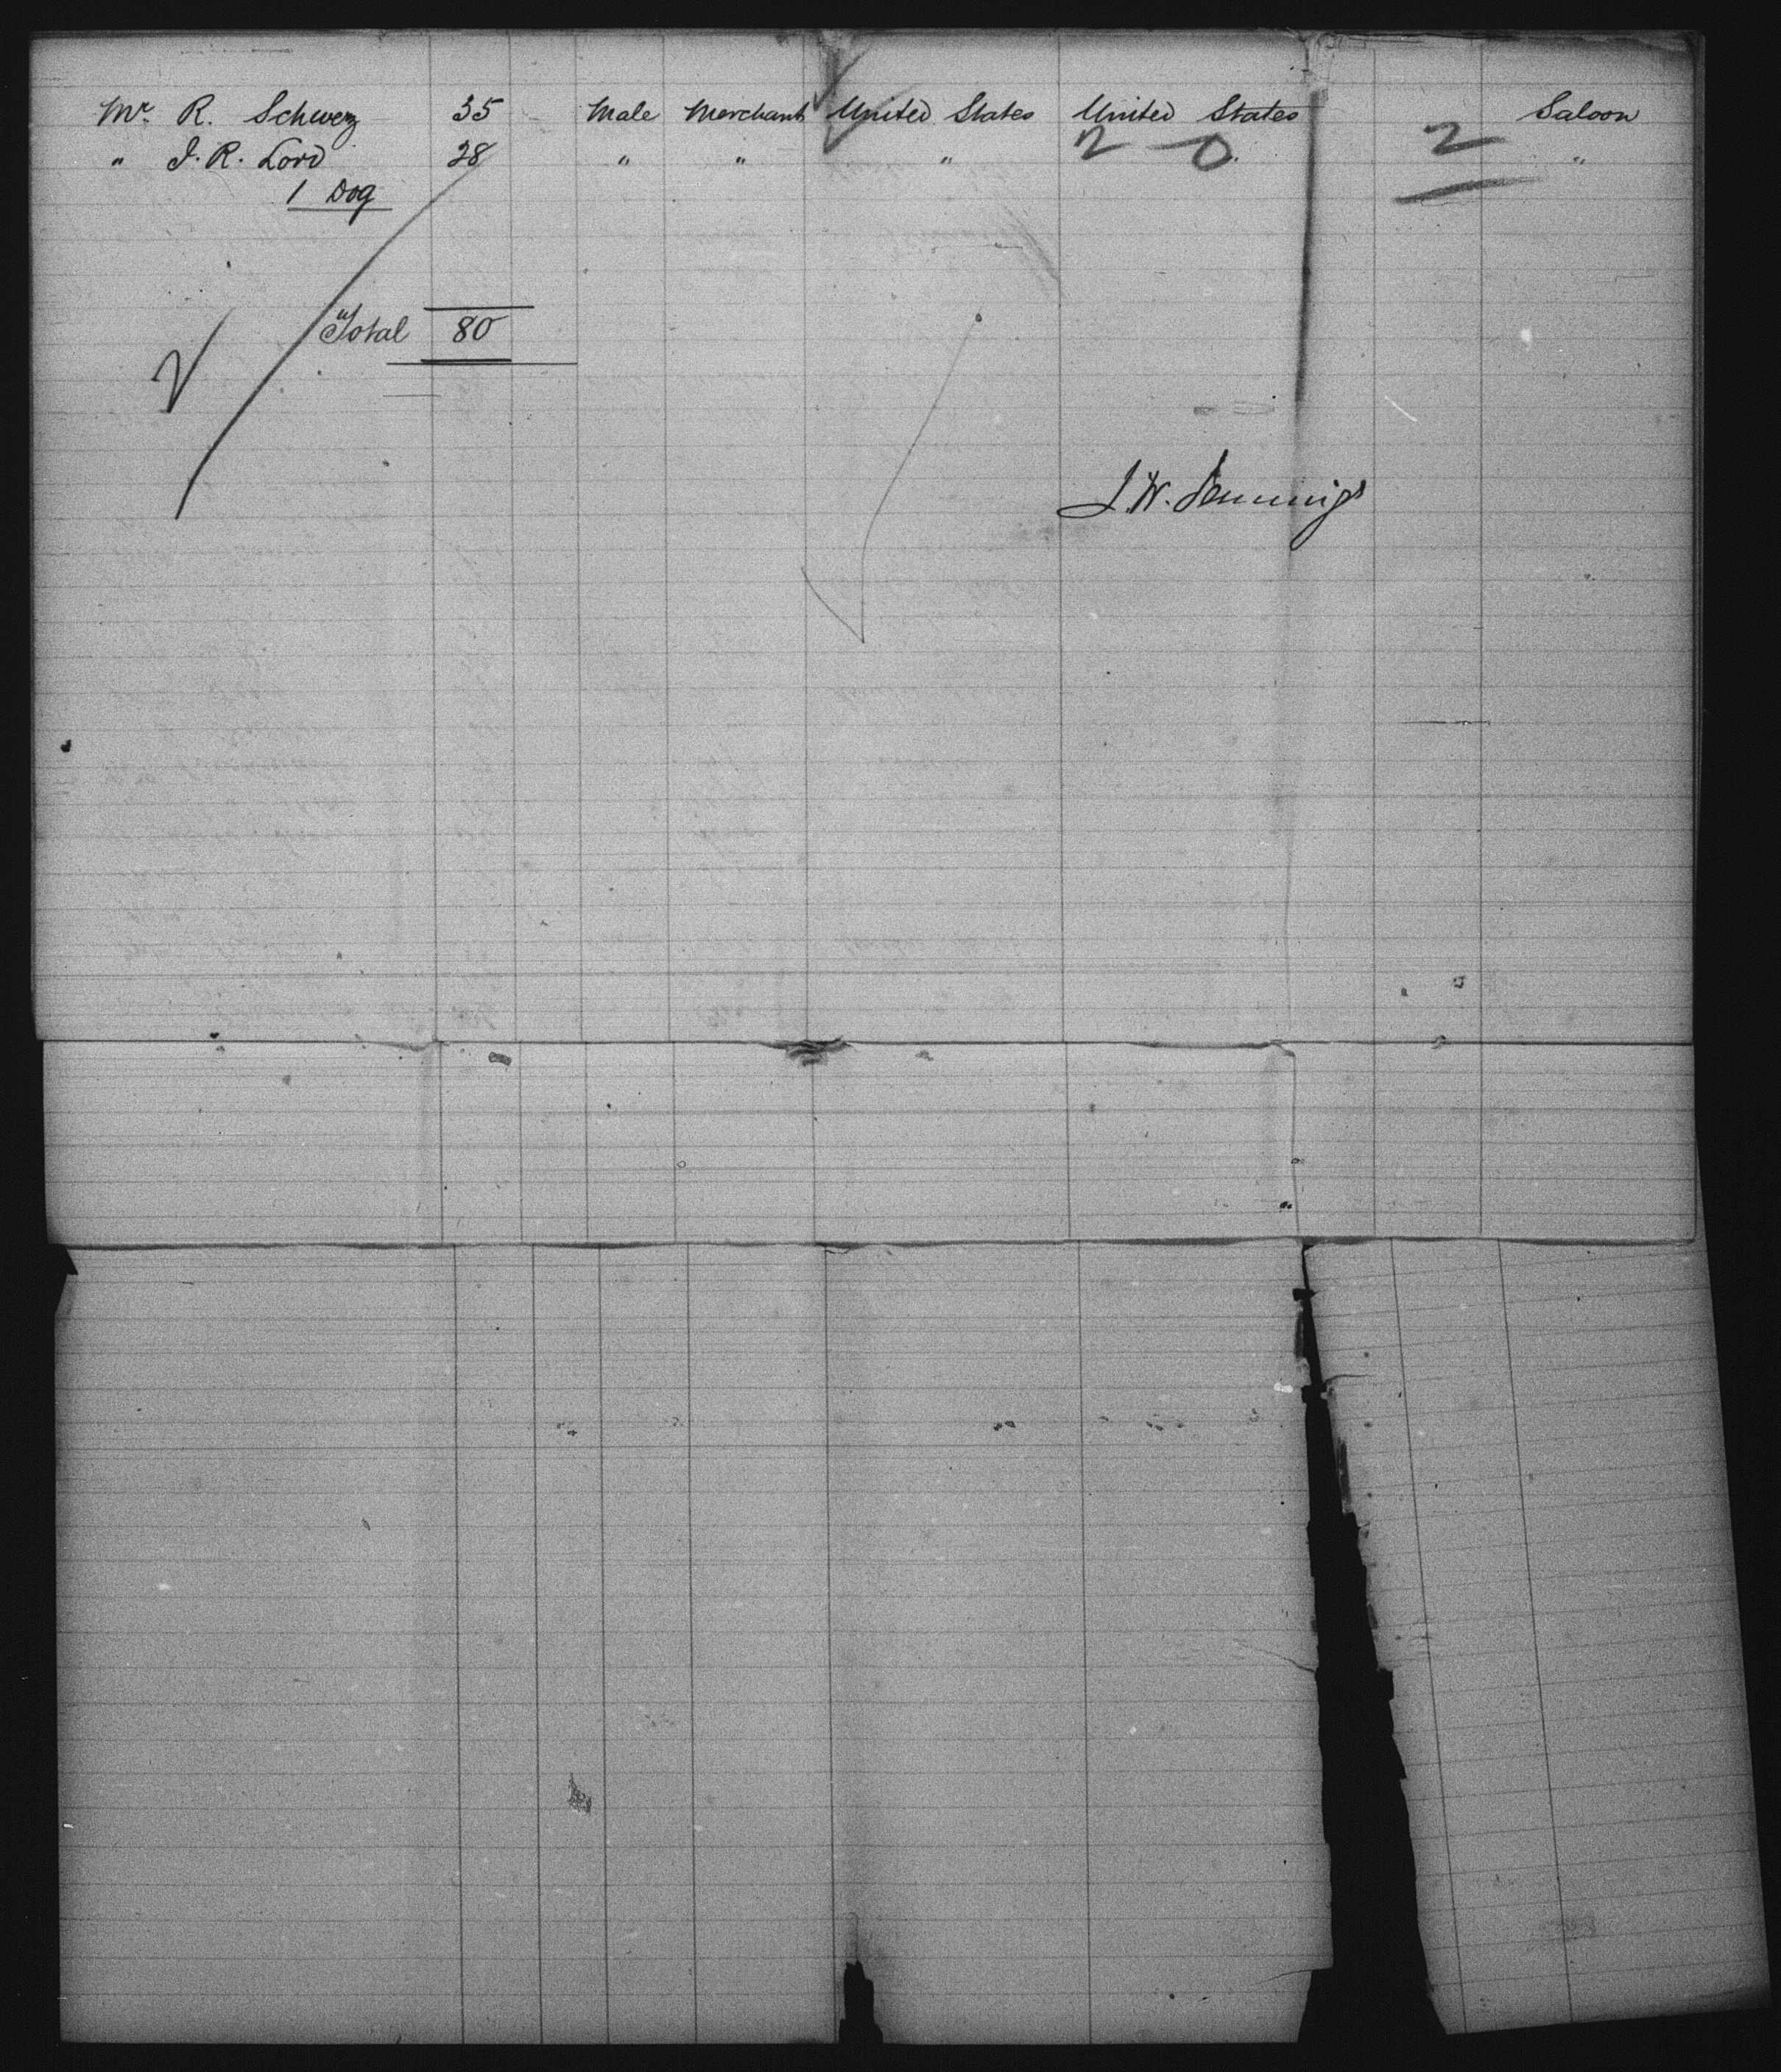 Mr. R. Schwerz 35 Male Merchant United States United States Saloon
" J. R. Lord 28 " " " 2 0 2 "
1 Dog
Total 80
J. W. Jennings